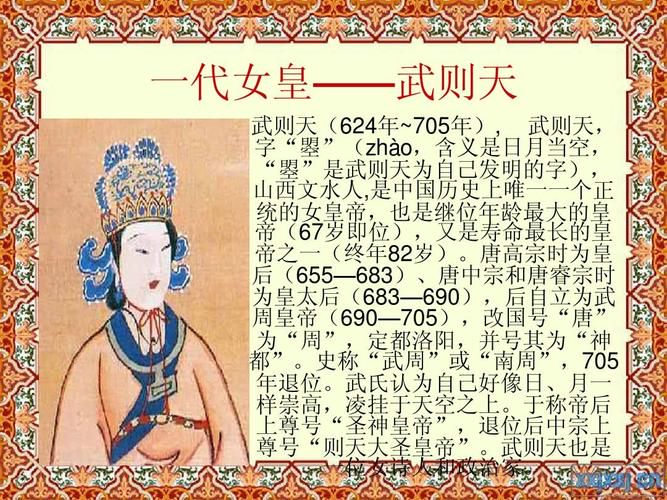 一代女皇——武则天
武则天（624年~705年）， 武则天，
字“曌”（zhào，含义是日月当空，
“曌”是武则天为自己发明的字），
山西文水人,是中国历史上唯一一个正
统的女皇帝，也是继位年龄最大的皇
帝（67岁即位），又是寿命最长的皇
帝之一（终年82岁）。唐高宗时为皇
后（655—683）、唐中宗和唐睿宗时
为皇太后（683—690），后自立为武
周皇帝（690—705），改国号“唐”
为“周”，定都洛阳，并号其为“神
都”。史称“武周”或“南周”，705
年退位。武氏认为自己好像日、月一
样崇高，凌挂于天空之上。于称帝后
上尊号“圣神皇帝”，退位后中宗上
尊号“则天大圣皇帝”。武则天也是
一位女诗人和政治家。